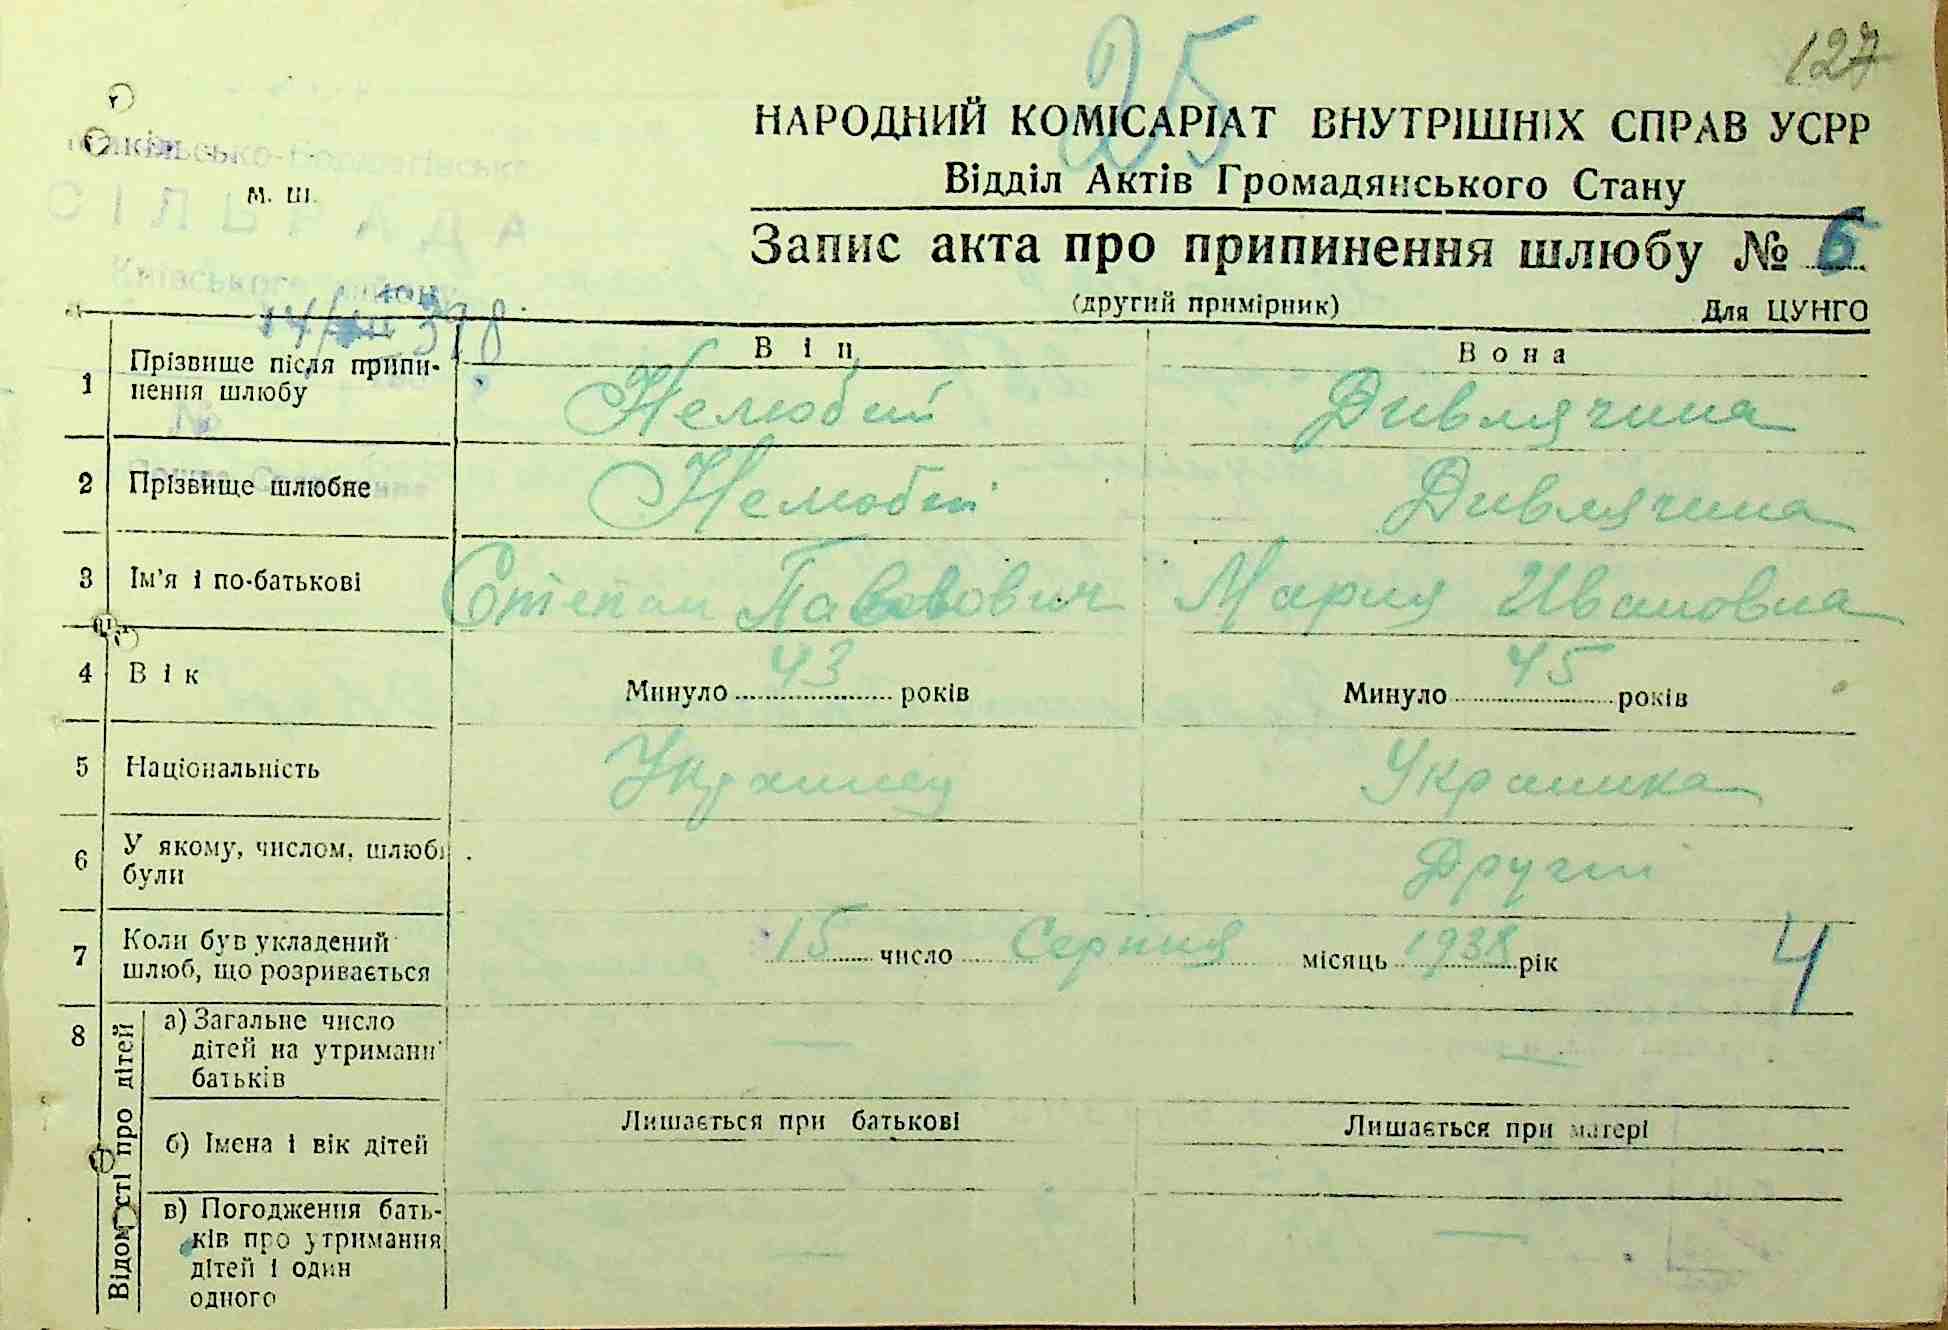 25
127
НАРОДНИЙ КОМІСАРІАТ ВНУТРІШНІХ СПРАВ УСРР
Відділ Актів Громадянського Стану
м. ш.
СІЛЬРАДА
Запис акта про припинення шлюбу № 6
(другий примірник) Для ЦУНГО
Він Вона
1 Прізвище після припи-
нення шлюбу
Нелюбий Дивлячина
2 Прізвище шлюбне Нелюбий Дивлячина
3 Ім'я і по-батькові Степан Павлович Мария Ивановна
4 Вік Минуло 43 років Минуло 45 років
5 Національність Украинец Украинка
6 У якому, числом, шлюбі
були
Другий
7 Коли був укладений
шлюб, що розривається
15 число Серпня місяць 1938 рік
4
8 Відомості про дітей
а) Загальне число
дітей на утриманні
батьків
—
—
б) Імена і вік дітей Лишається при батькові Лишається при матері
в) Погодження бать-
ків про утримання
дітей і один
одного
—
—